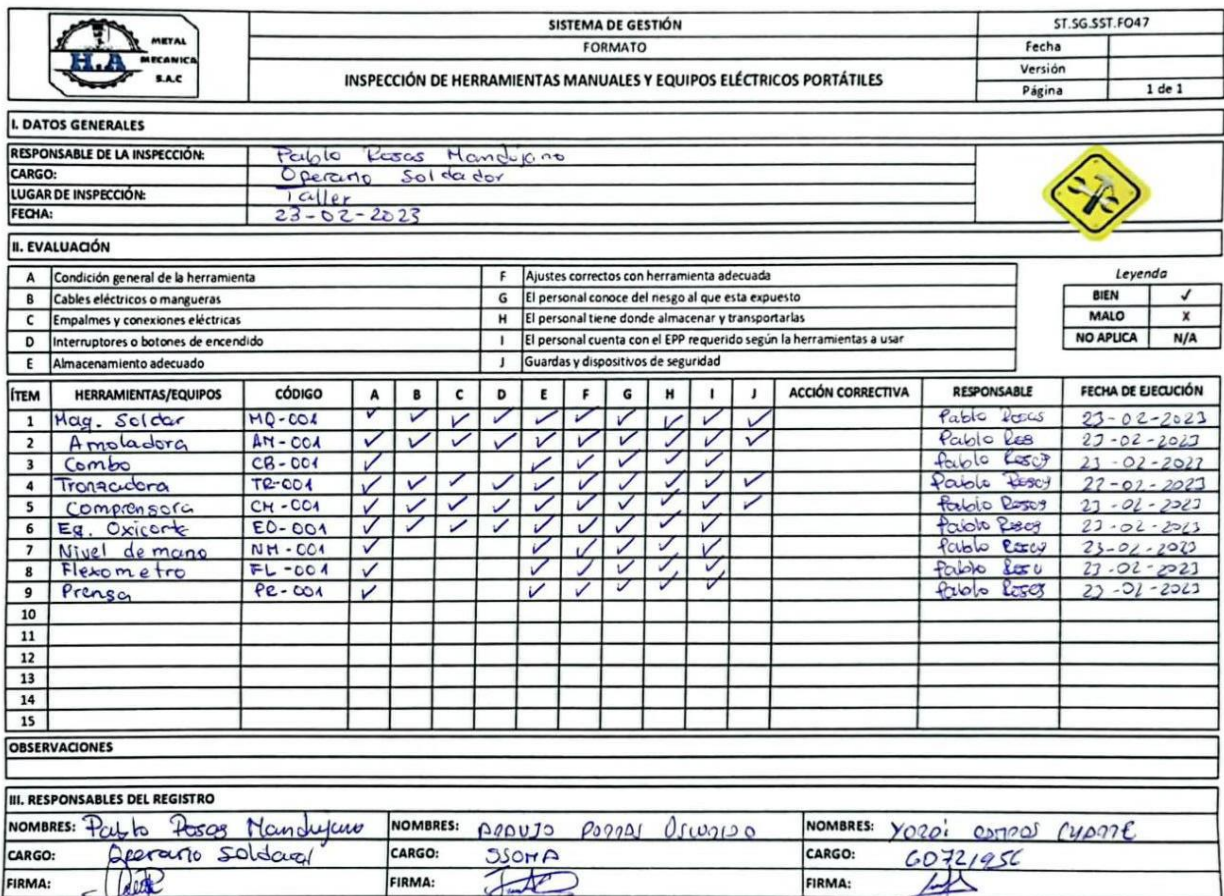 METAL
H.A MECANICA
S.A.C
SISTEMA DE GESTIÓN
FORMATO
INSPECCIÓN DE HERRAMIENTAS MANUALES Y EQUIPOS ELÉCTRICOS PORTÁTILES
ST.SG.SST.FO47
Fecha
Versión
Página 1 de 1
I. DATOS GENERALES
RESPONSABLE DE LA INSPECCIÓN: Pablo Rosas Mandujano
CARGO: Operario Soldador
LUGAR DE INSPECCIÓN: Taller
FECHA: 23-02-2023
II. EVALUACIÓN
A Condición general de la herramienta
B Cables eléctricos o mangueras
C Empalmes y conexiones eléctricas
D Interruptores o botones de encendido
E Almacenamiento adecuado
F Ajustes correctos con herramienta adecuada
G El personal conoce del riesgo al que esta expuesto
H El personal tiene donde almacenar y transportarlas
I El personal cuenta con el EPP requerido según la herramientas a usar
J Guardas y dispositivos de seguridad
Leyenda
BIEN ✓
MALO X
NO APLICA N/A
ÍTEM HERRAMIENTAS/EQUIPOS CÓDIGO A B C D E F G H I J ACCIÓN CORRECTIVA RESPONSABLE FECHA DE EJECUCIÓN
1 Maq. Soldar MQ-001 ✓ ✓ ✓ ✓ ✓ ✓ ✓ ✓ ✓ ✓ Pablo Rosas 23-02-2023
2 Amoladora AM-001 ✓ ✓ ✓ ✓ ✓ ✓ ✓ ✓ ✓ ✓ Pablo 23-02-2023
3 Combo CB-001 ✓ ✓ ✓ ✓ ✓ ✓ Pablo Rosas 23-02-2023
4 Tronzadora TR-001 ✓ ✓ ✓ ✓ ✓ ✓ ✓ ✓ ✓ ✓ Pablo Rosas 23-02-2023
5 Comprensora CM-001 ✓ ✓ ✓ ✓ ✓ ✓ ✓ ✓ ✓ ✓ Pablo Rosas 23-02-2023
6 Eq. Oxicorte EO-001 ✓ ✓ ✓ ✓ ✓ ✓ ✓ ✓ ✓ Pablo Rosas 23-02-2023
7 Nivel de mano NM-001 ✓ ✓ ✓ ✓ ✓ ✓ Pablo Rosas 23-02-2023
8 Flexometro FL-001 ✓ ✓ ✓ ✓ ✓ ✓ Pablo 23-02-2023
9 Prensa PR-001 ✓ ✓ ✓ ✓ ✓ ✓ Pablo Rosas 23-02-2023
10
11
12
13
14
15
OBSERVACIONES
III. RESPONSABLES DEL REGISTRO
NOMBRES: Pablo Rosas Mandujano
CARGO: Operario Soldador
FIRMA:
NOMBRES: PORRAS
CARGO: SSOMA
FIRMA:
NOMBRES:
CARGO: 60721956
FIRMA: